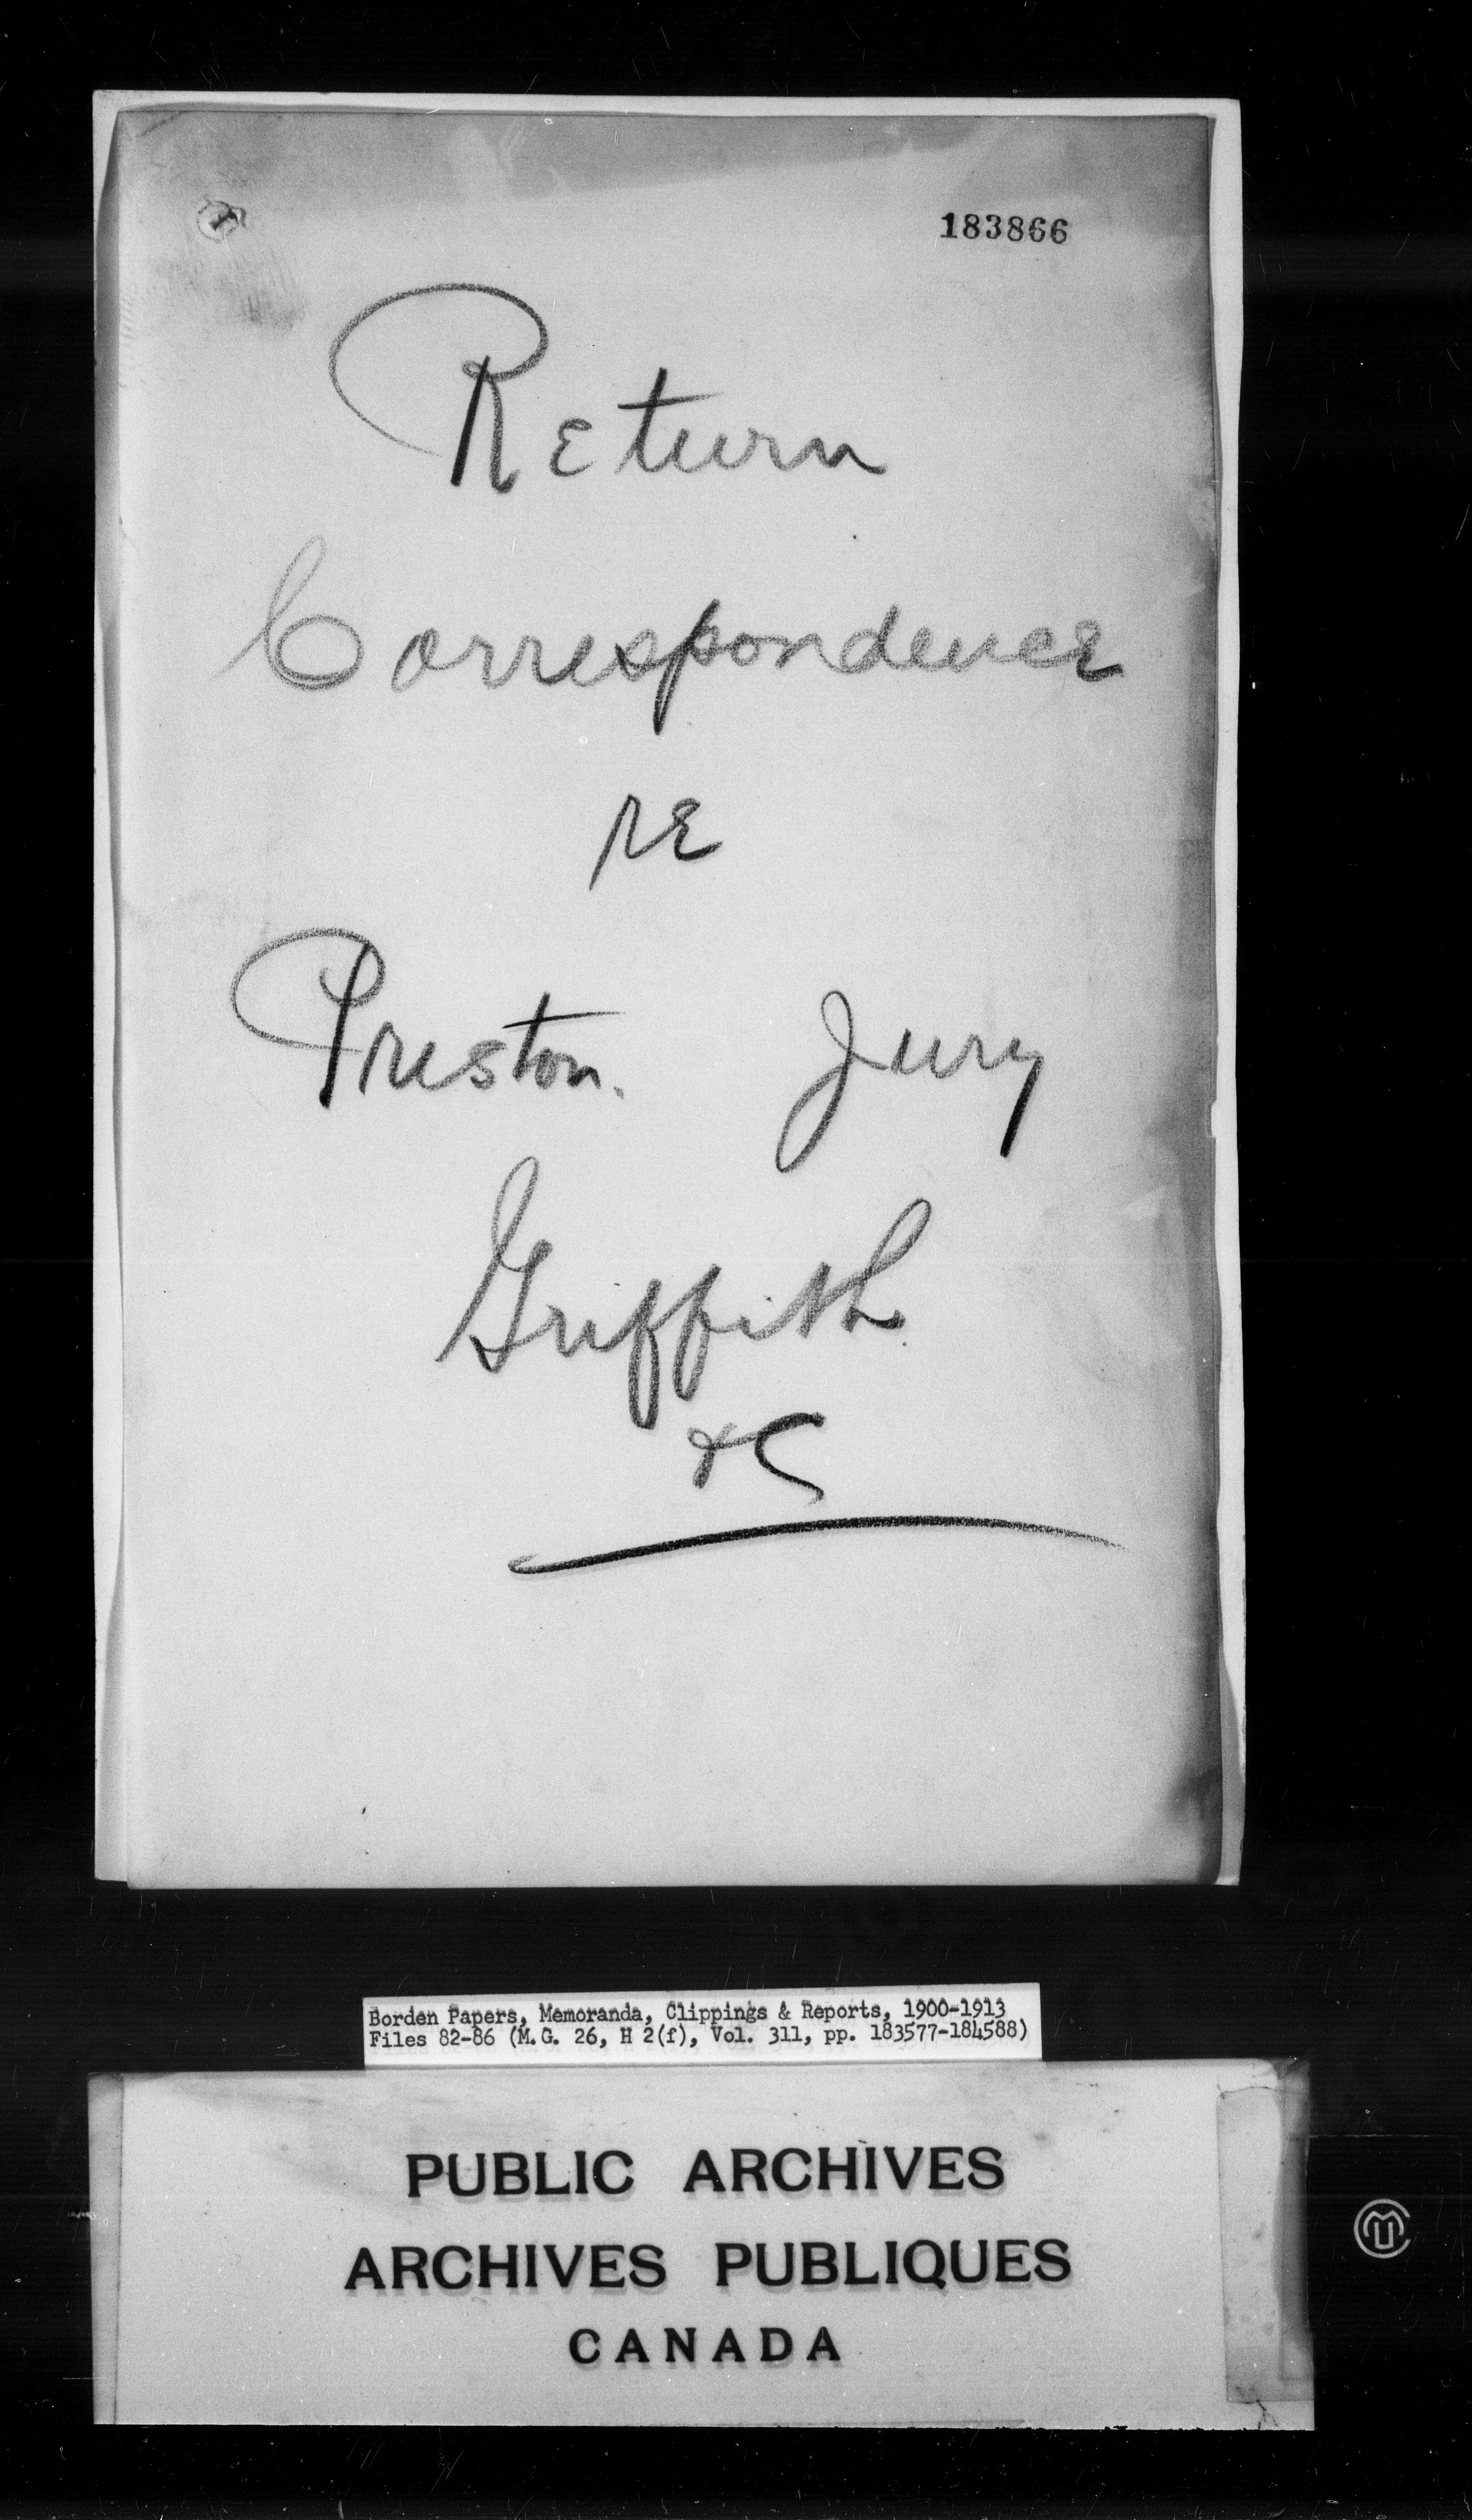 183866
Return
Correspondence
re
Preston. Jury
Griffith
&c
Borden Papers, Memoranda, Clippings & Reports, 1900-1913
Files 82-86 (M.G. 26, H 2(f), Vol. 311, pp. 183577-184588)
PUBLIC ARCHIVES
ARCHIVES PUBLIQUES
CANADA